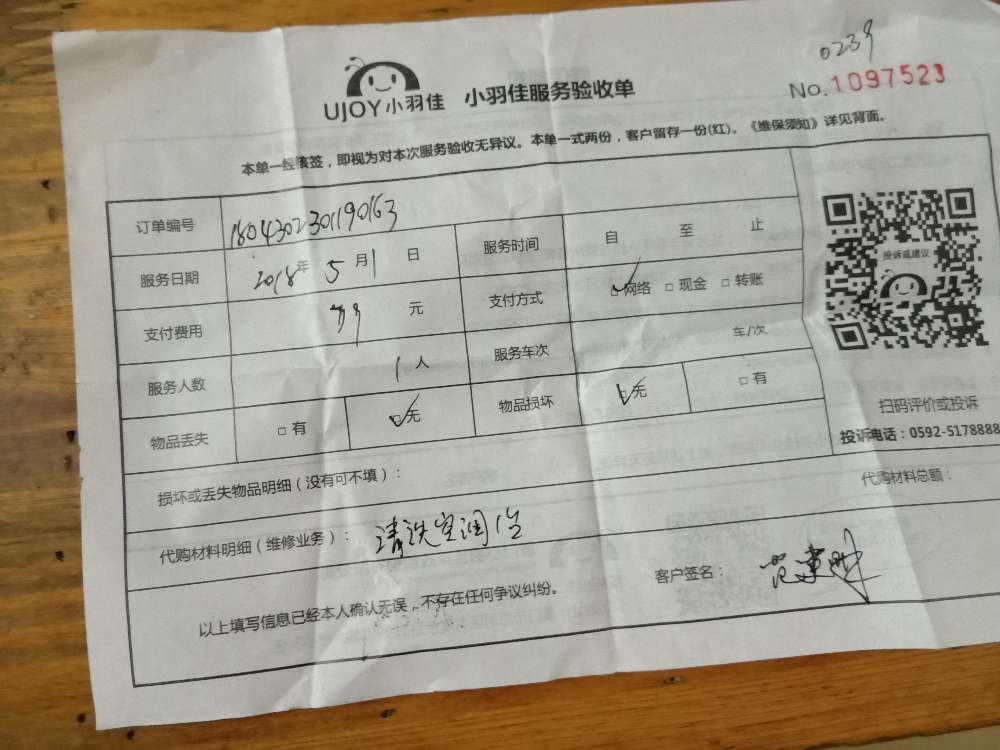 0239
UJOY小羽佳 小羽佳服务验收单 No.1097523
本单一经核签，即视为对本次服务验收无异议。本单一式两份，客户留存一份(红)。《维保须知》详见背面。
订单编号 1804302301190163
服务日期 2018年5月1日 服务时间 自 至 止
支付费用 99元 支付方式 □网络 □现金 □转账
服务人数 1人 服务车次 车/次
物品丢失 □有 □无 物品损坏 □无 □有
投诉或建议
扫码评价或投诉
投诉电话：0592-5178888
损坏或丢失物品明细（没有可不填）：
代购材料总额：
代购材料明细（维修业务）： 清洗空调1台
客户签名：
以上填写信息已经本人确认无误，不存在任何争议纠纷。